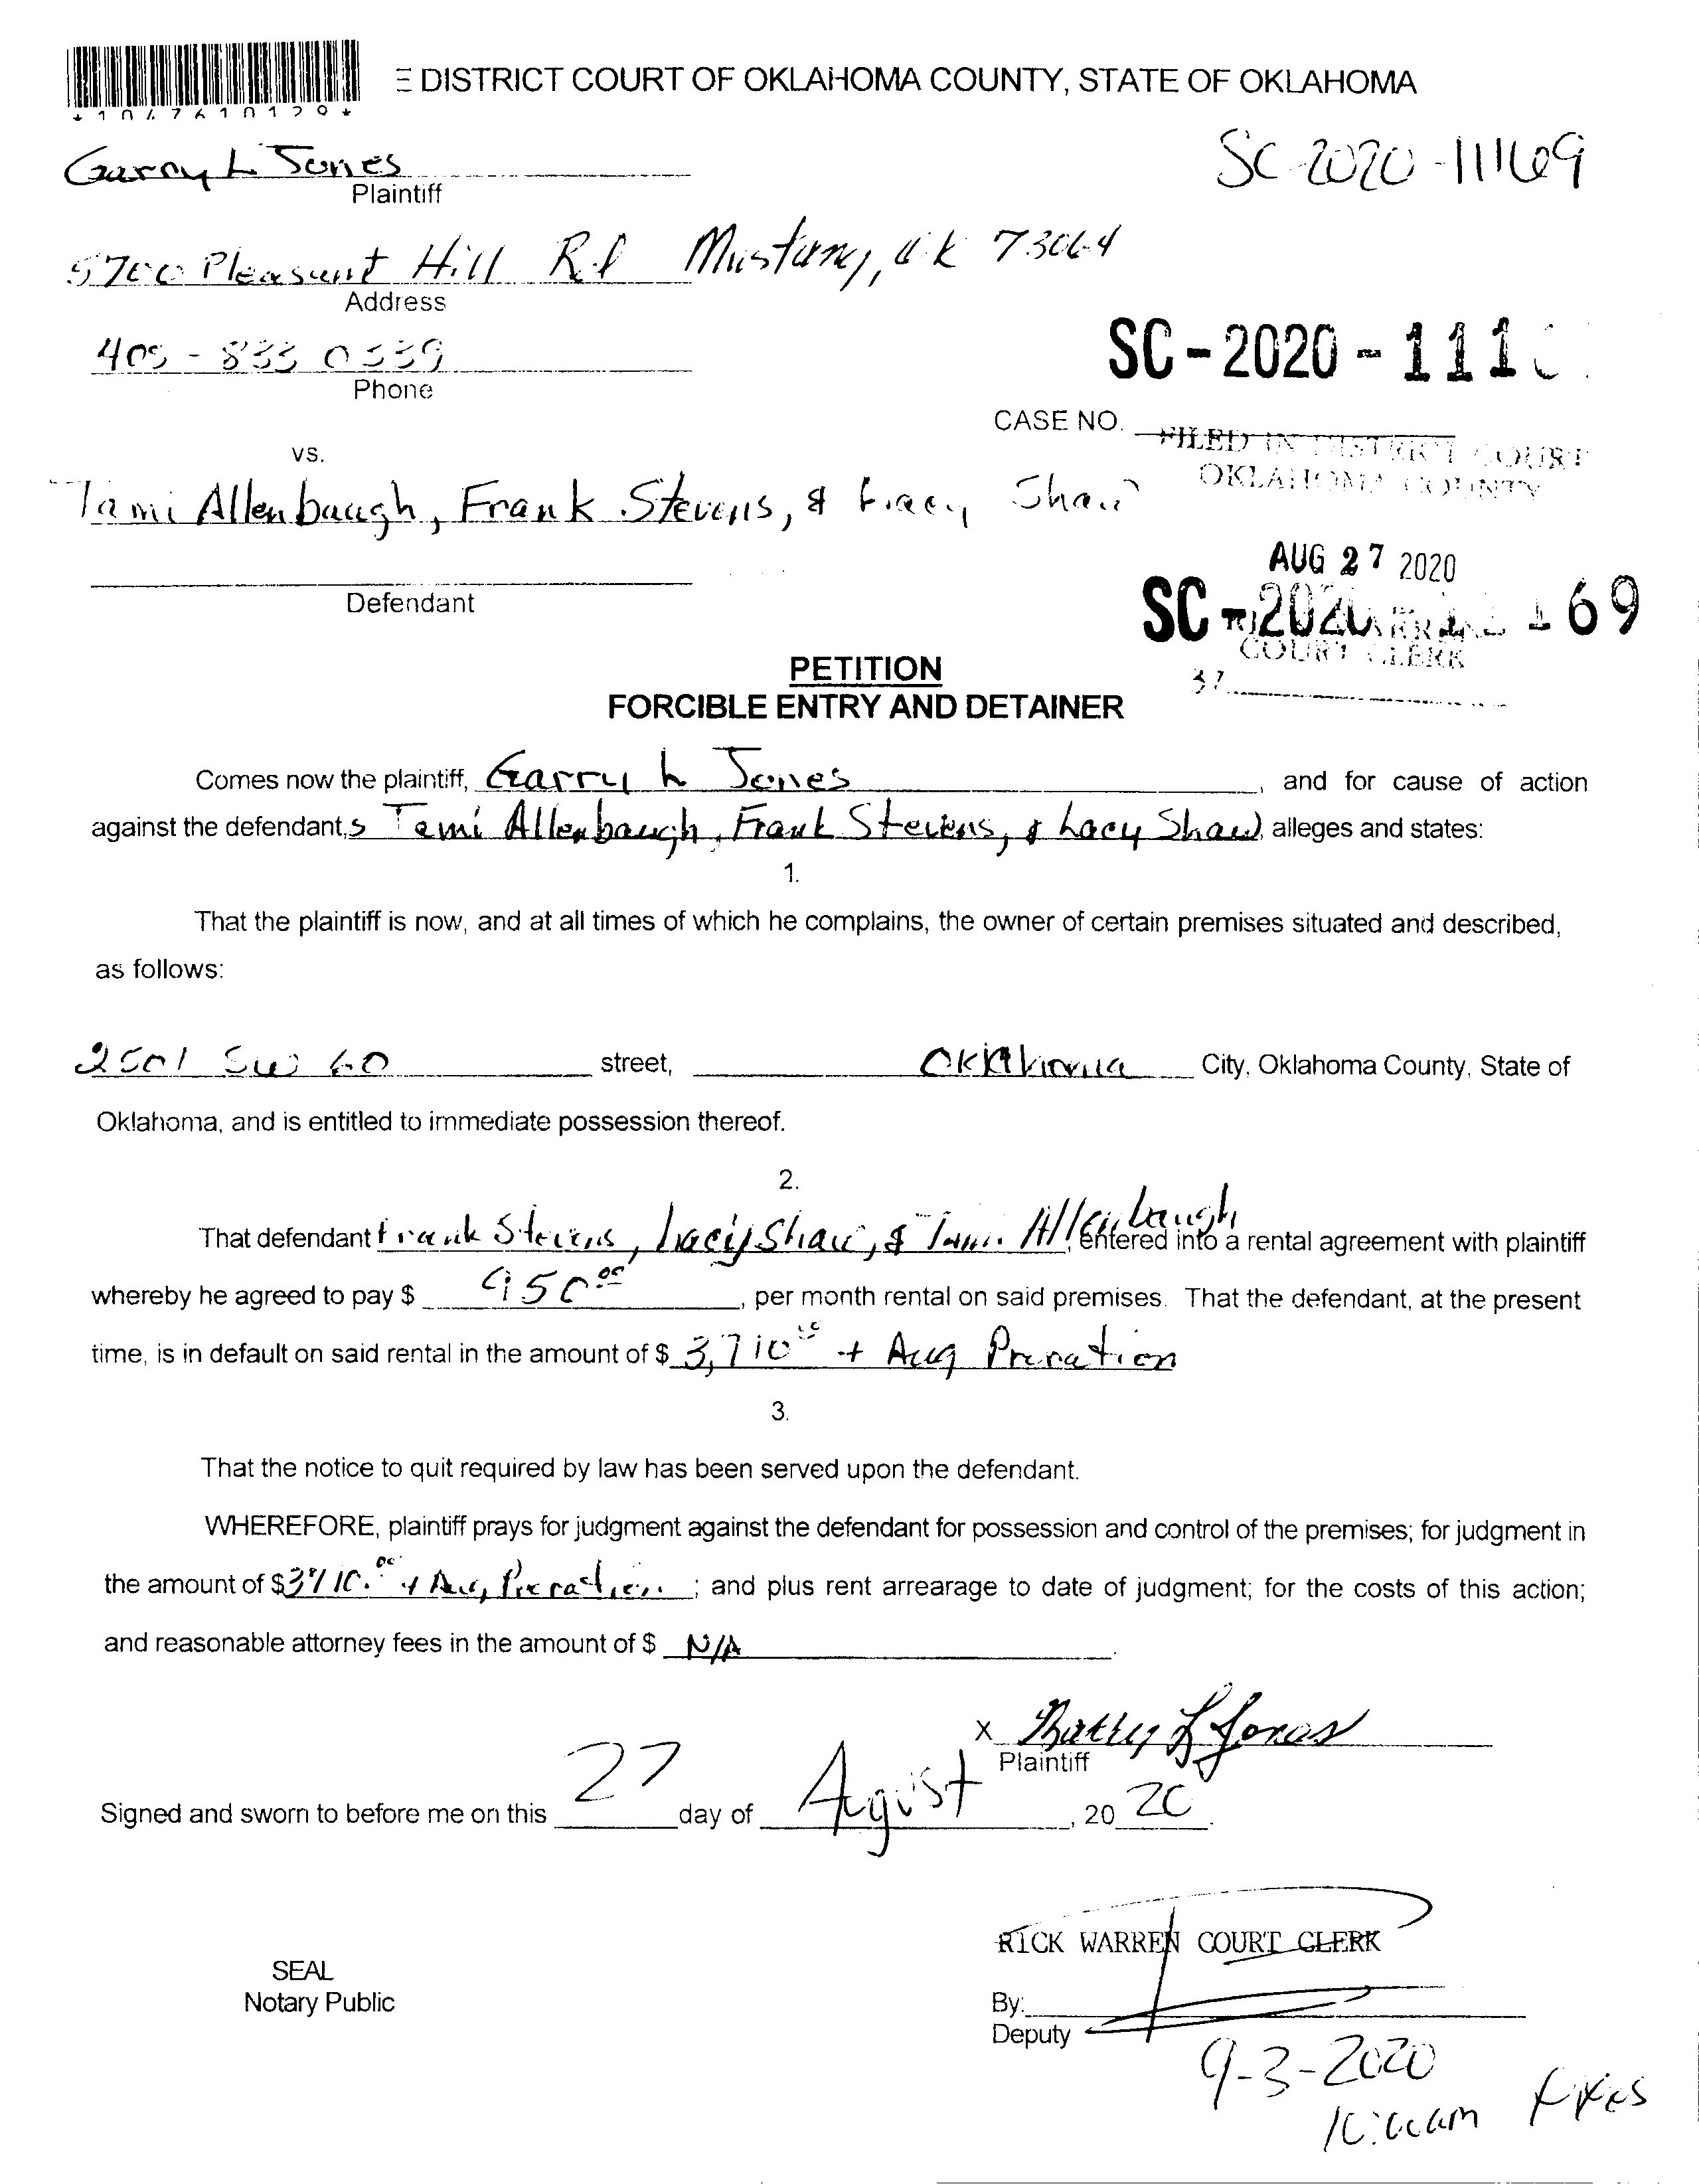 DISTRICT COURT OF OKLAHOMA COUNTY, STATE OF OKLAHOMA
Garry L Jones
Plaintiff
SC-2020-11169
5700 Pleasant Hill Rd Mustang, ok 73064
Address
SC-2020-111
405-833 0339
Phone
CASE NO.
FILED IN DISTRICT COURT
OKLAHOMA COUNTY
vs.
Tami Allenbaugh, Frank Stevens, & Lacy Shaw
AUG 27 2020
Defendant
SC-2020-11169
COURT CLERK
37
PETITION
FORCIBLE ENTRY AND DETAINER
Comes now the plaintiff, Garry L Jones, and for cause of action
against the defendant,s Tami Allenbaugh, Frank Stevens, & Lacy Shaw, alleges and states:
1.
That the plaintiff is now, and at all times of which he complains, the owner of certain premises situated and described,
as follows:
2501 SW 60 street, Oklahoma City, Oklahoma County, State of
Oklahoma, and is entitled to immediate possession thereof.
2.
That defendant Frank Stevens, Lacy Shaw, & Tami Allenbaugh, entered into a rental agreement with plaintiff
whereby he agreed to pay $ 950.00, per month rental on said premises. That the defendant, at the present
time, is in default on said rental in the amount of $ 3,710.00 + Aug Proration
3.
That the notice to quit required by law has been served upon the defendant.
WHEREFORE, plaintiff prays for judgment against the defendant for possession and control of the premises; for judgment in
the amount of $3710.00 + Aug Proration; and plus rent arrearage to date of judgment; for the costs of this action;
and reasonable attorney fees in the amount of $ N/A.
x Garry L Jones
Plaintiff
Signed and sworn to before me on this 27 day of Agust, 20 20.
RICK WARREN COURT CLERK
SEAL
Notary Public
By:
Deputy
9-3-2020
10:00am